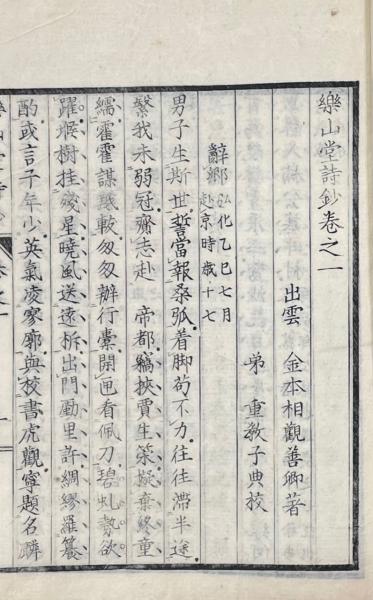 樂山堂詩鈔卷之一
出雲 金本相觀善卿著
弟 重教子典校
辭鄉 弘化乙巳七月赴京時歲十七
男子生斯世誓當報桑弧着脚苟不力往往滯半途
繄我未弱冠齎志赴 帝都竊挾賈生策擬棄終童
繻霍霍謀躞匆匆辦行橐開匣看佩刀碧虬勢欲
躍堠樹挂殘星曉風送遠柝出門動里許綢繆羅餞
酌或言子年少英氣凌寥廓與校書虎觀寧題名麟